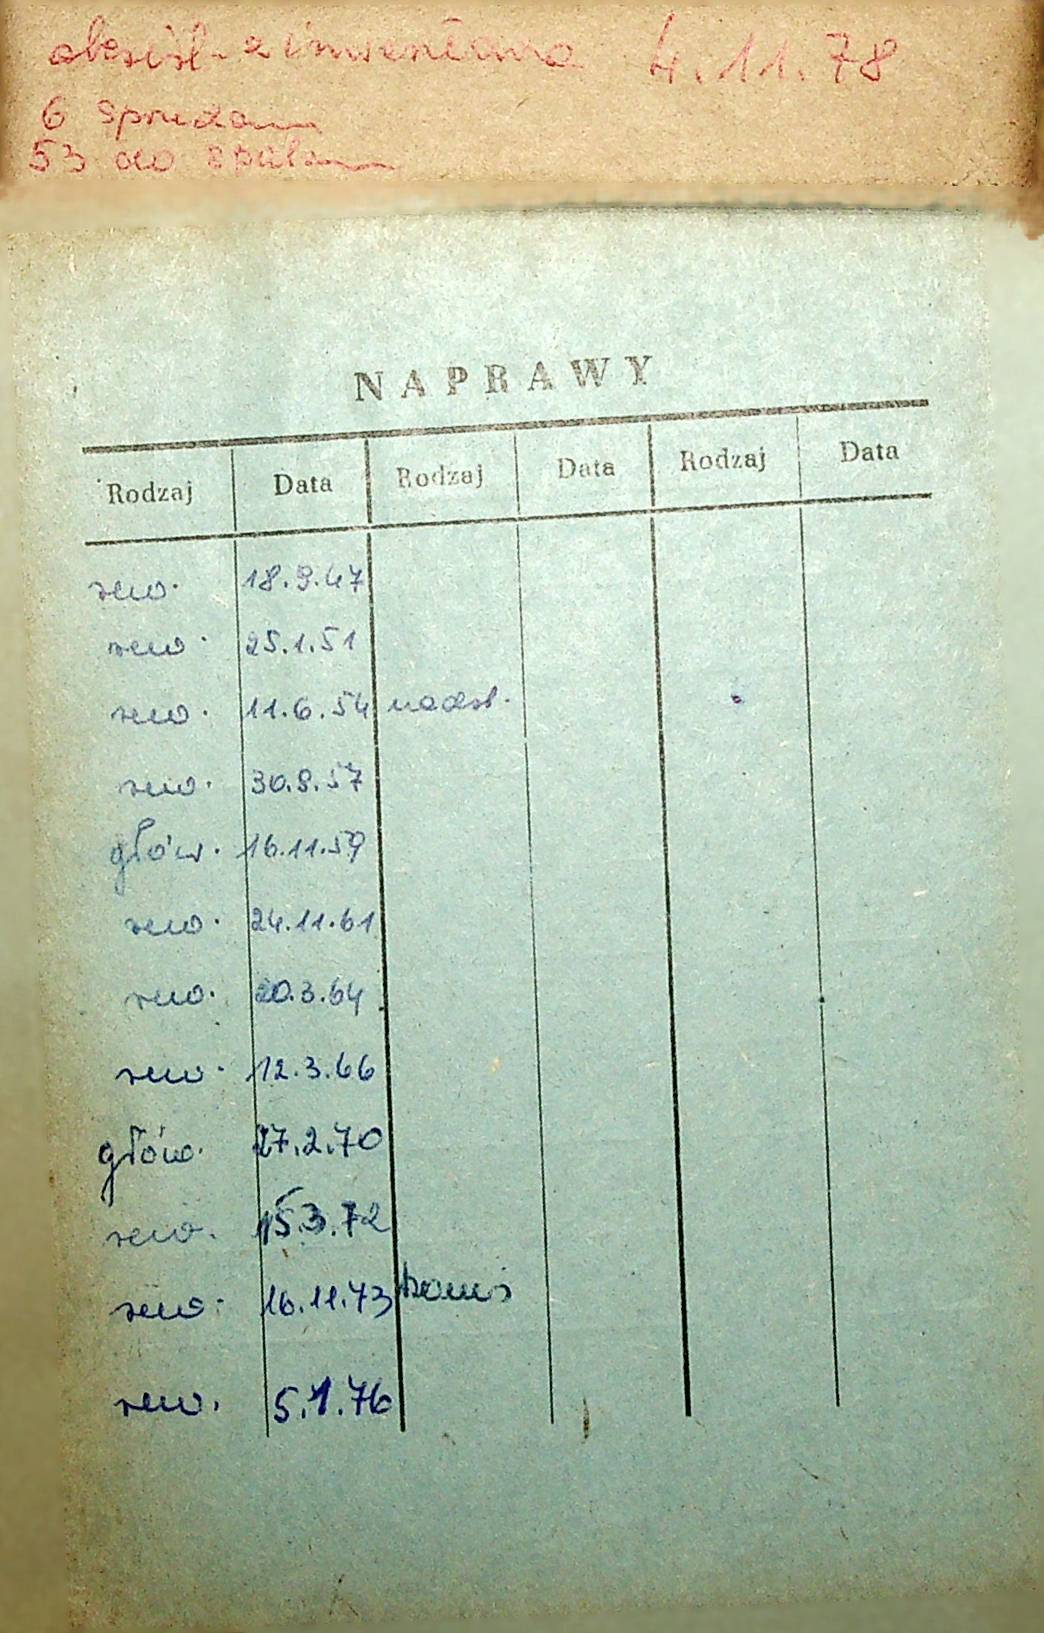 4.11.78
6
53 do
NAPRAWY
Rodzaj Data Rodzaj Data Rodzaj Data
rew. 18.9.47
rew. 25.1.51
rew. 11.6.54 nadst.
rew. 30.8.57
głów. 16.11.59
rew. 24.11.61
rew. 20.3.64
rew. 12.3.66
głów. 27.2.70
rew. 15.3.72
rew. 16.11.73
rew. 5.1.76